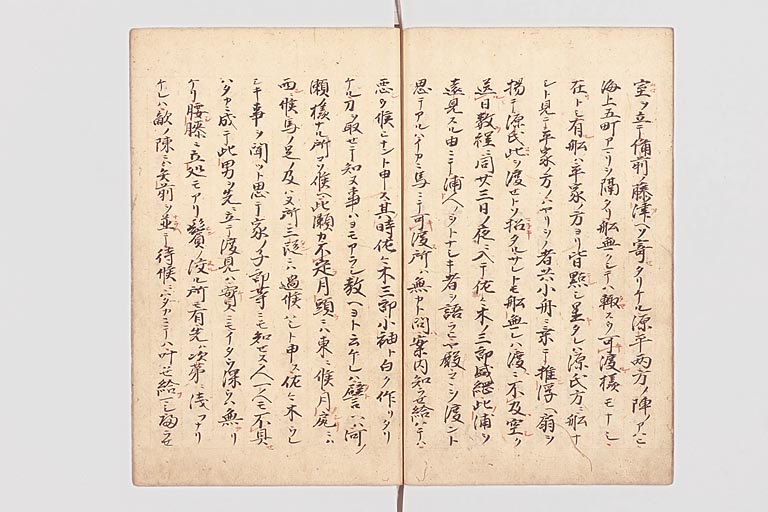 室ヲ立テ備前ノ藤津ヘソ寄タリケル源平両方ノ陣ノアハヒ
海上五町アマリヲ隔タリ船無クシテハ輙スク可渡様モナシ
在トシ有船ハ平家ノ方ヨリ皆點シ置タレハ源氏方ニ船ナ
シト見テ平家ノ方ノハヤリヲノ者共小舟ニ乗テ推浮ヘ扇ヲ
揚テ源氏此ヲ渡セトソ招タルサレトモ船無レハ渡ニ不及空ク
送日数程ニ同廿三日ノ夜ニ入テ佐々木ノ三郎盛継此浦ヲ
遠見スル由ニテ浦人ノヲトナシキ者ヲ語ラヒ
思テアルハイカニ馬ニテ可渡所ハ無カト問案内知
悪ク候ヒナント申ス其時佐々木三郎小袖ト白ク作リタリ
ケル刀ヲ取セテ知ヌ事ハヨモアラシ教ヘヨト云ケレハ譬ハ河ノ
瀬様ナル所コソ候ヘ此瀬カ不定月頭ニハ東ニ候月尻ニハ
西ニ候馬ノ足ノ及ハヌ所三段ニハ過候ハシト申ス佐々木ウレ
シキ事ヲ聞ツト思テ家ノ子郎等ニモ知セス人一人モ不具
ハタカニ成テ此男ヲ先ニ立テ渡見ハ實ニモイタク深クハ無リ
ケリ腰膝ニ立処モアリ鬢ノ没ル所モ有先ハ次第ニ浅アリ
ケレハ敵ノ陳ニハ矢前ヲ並テ待候ニハタカニテハ叶セ給ハシ